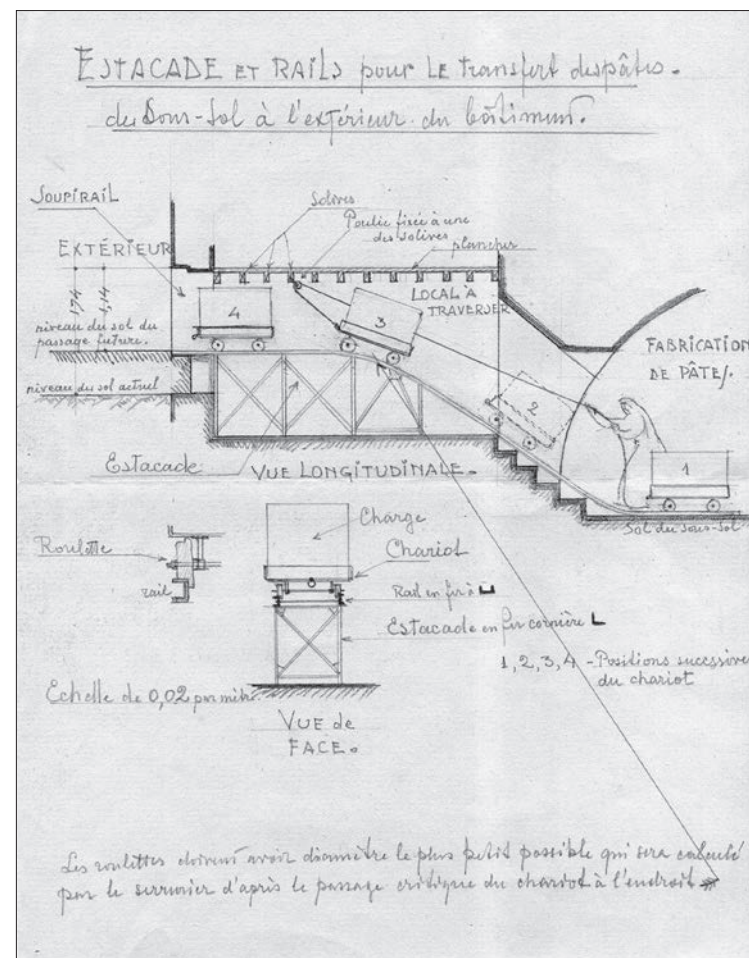 ESTACADE ET RAILS pour LE transfert des pâtes.
du Sous-Sol à l'extérieur du bâtiment.
SOUPIRAIL
Solives
Poulie fixée à une
des solives
plancher
EXTÉRIEUR
1,74
1,14
4
3
LOCAL A
TRAVERSER
niveau du sol du
passage future.
FABRICATION
DE PÂTES.
niveau du sol actuel
2
1
Estacade
VUE LONGITUDINALE.
Sol du sous-sol
Charge
Roulette
Chariot
rail
Rail en fer à U
Estacade en fer cornière L
1, 2, 3, 4 - Positions successives
du chariot
Echelle de 0,02 par mètre.
VUE de
FACE.
Les roulettes doivent avoir diamètre le plus petit possible qui sera calculé
par le serrurier d'après le passage critique du chariot à l'endroit